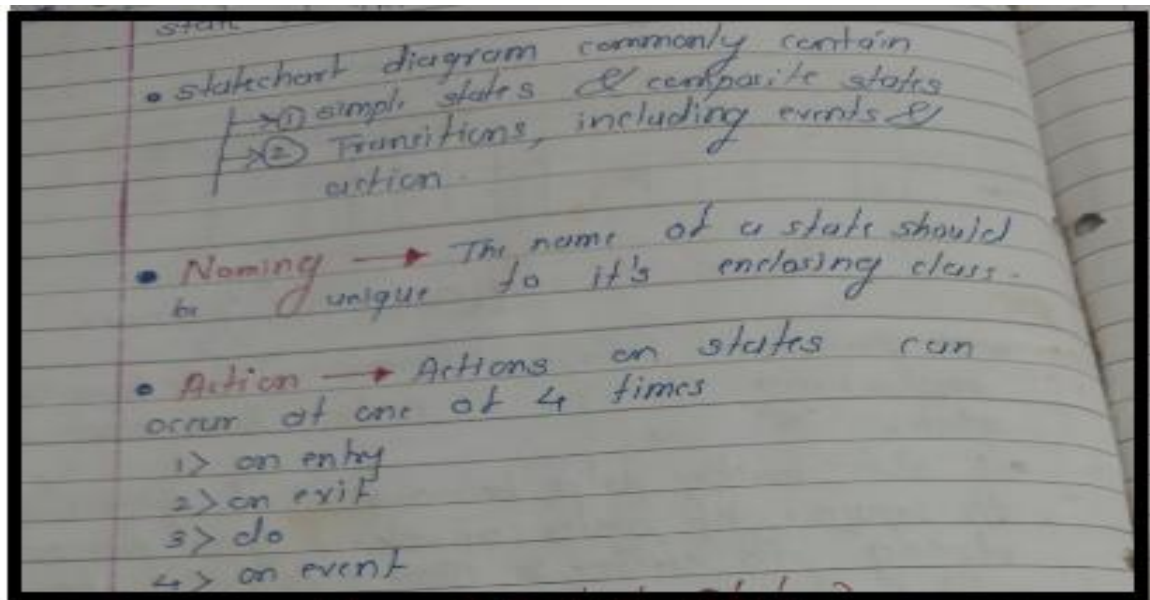 • statechart diagram commonly contain
→ ① simple states & composite states
→ ② Transitions, including events &
action.
• Naming → The name of a state should
be unique to it's enclosing class.
• Action → Actions on states can
occur at one of 4 times
1> on entry
2> on exit
3> do
4> on event